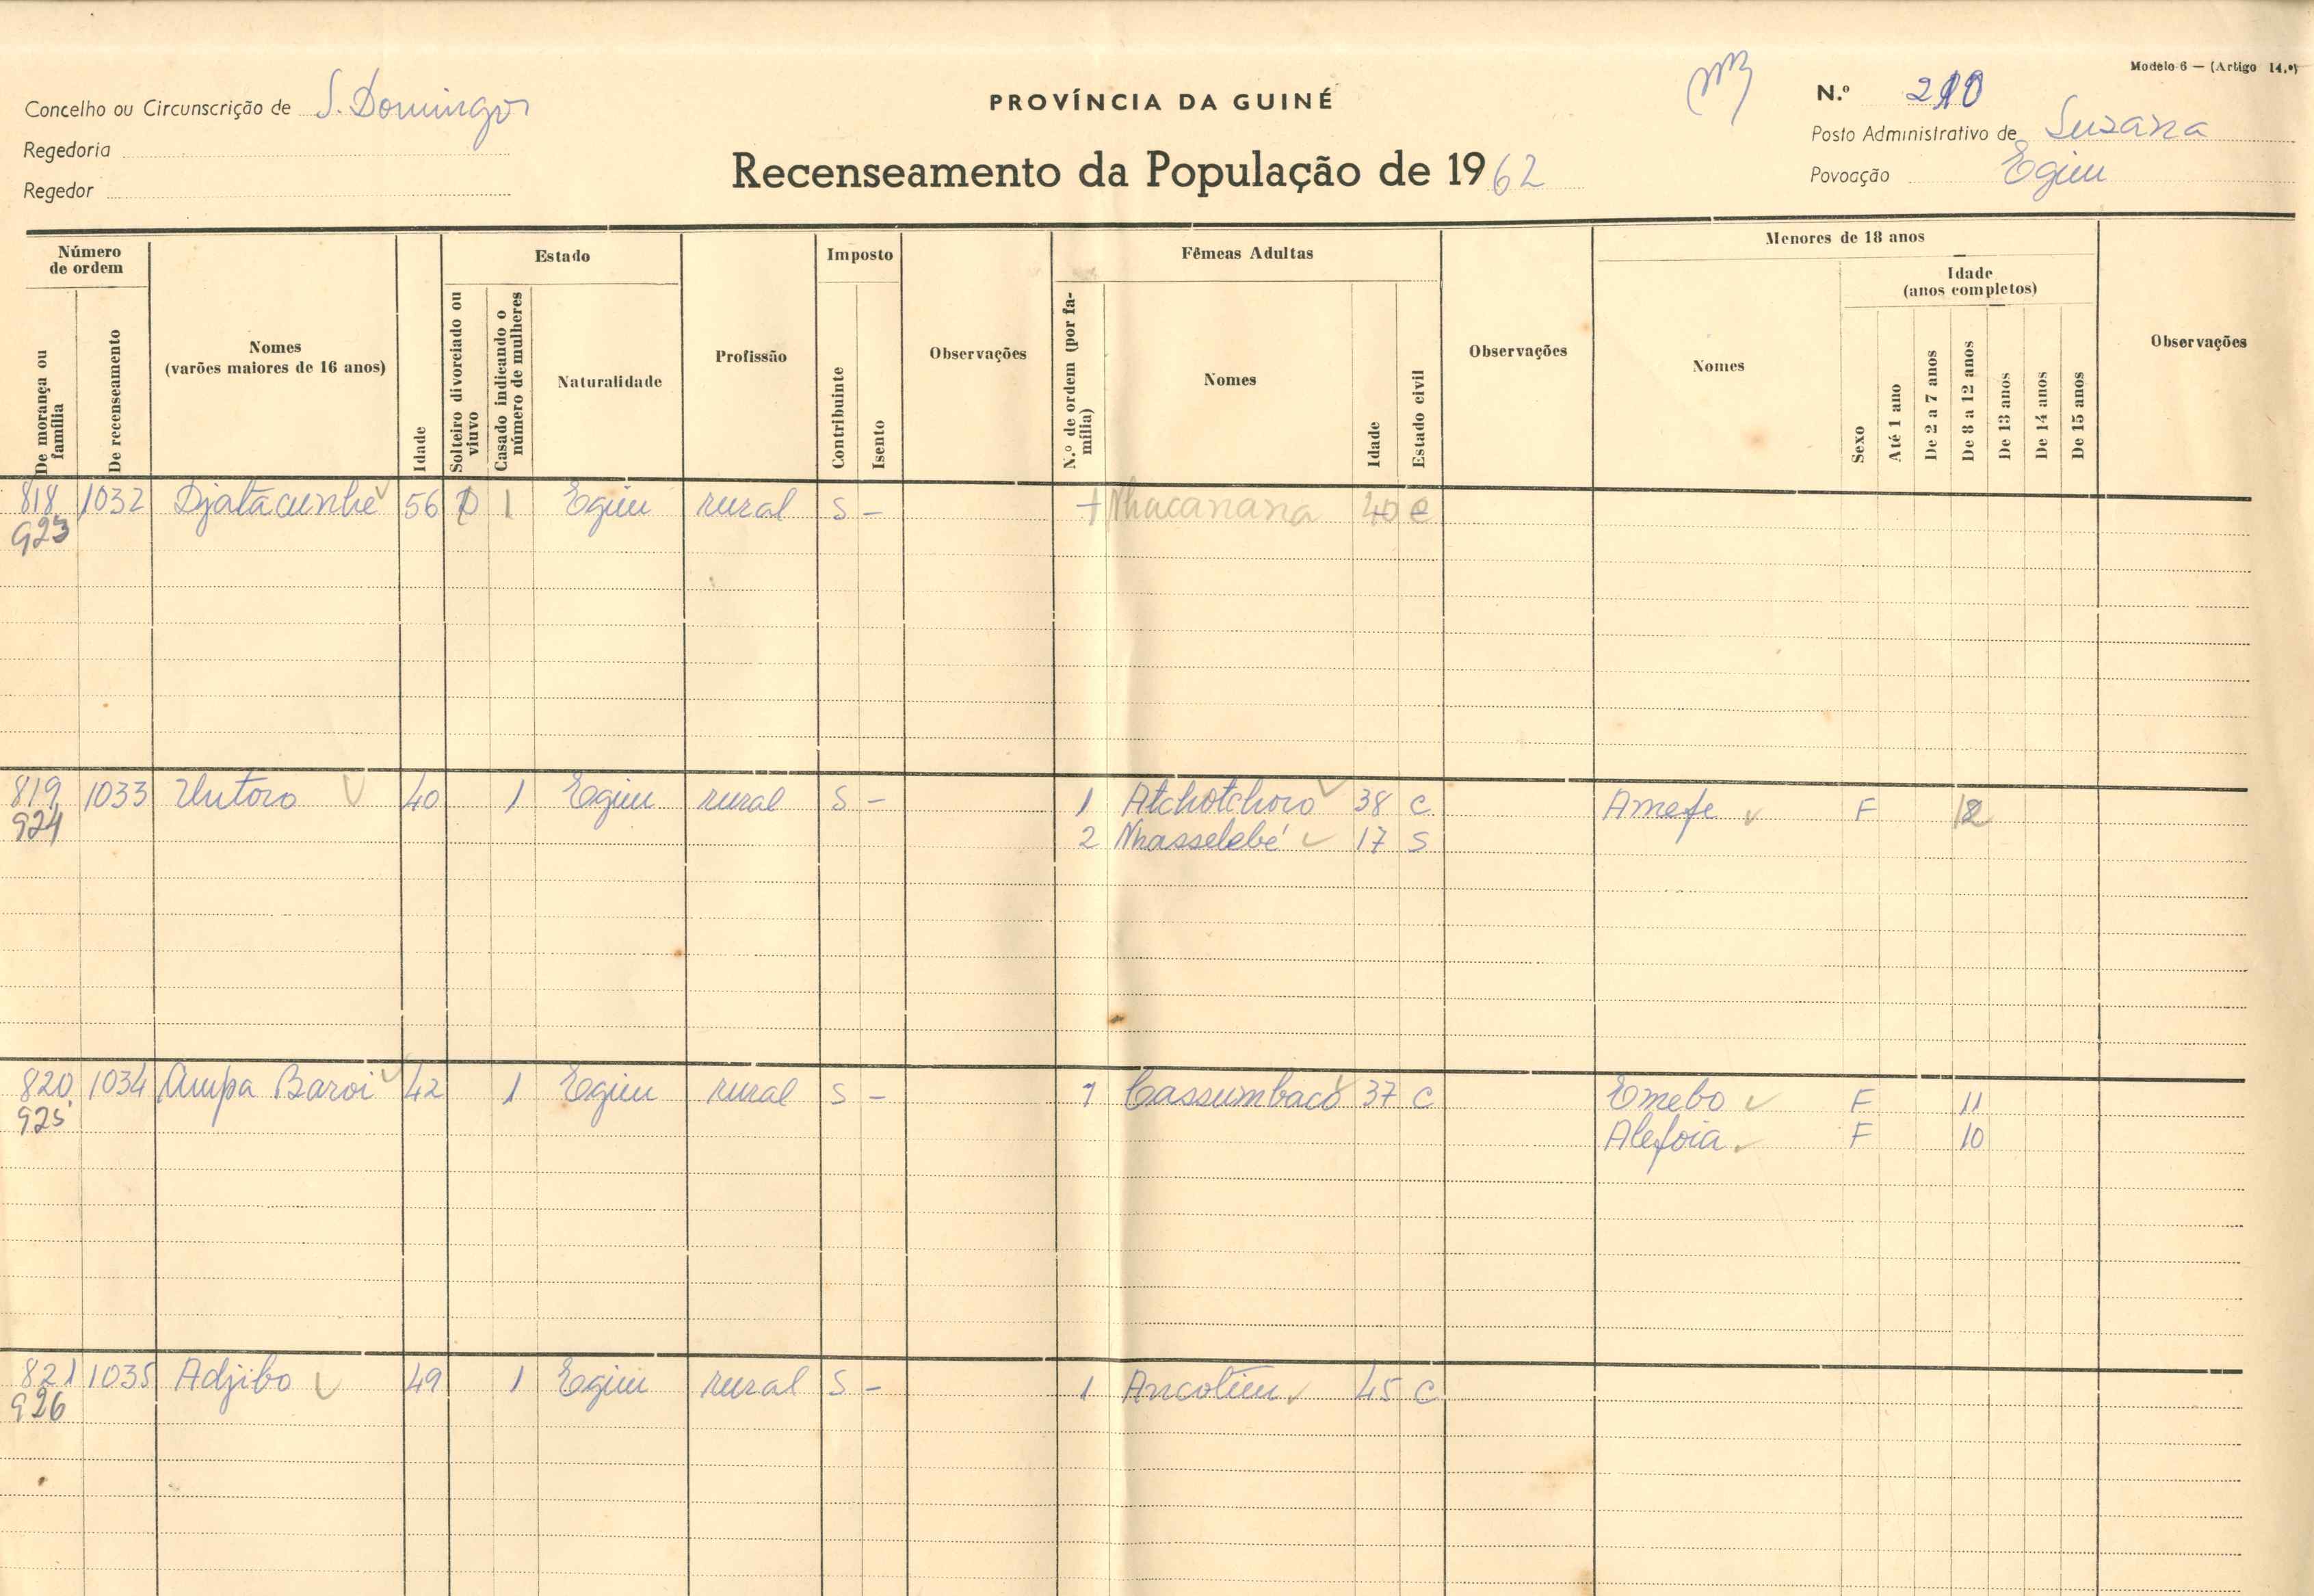 Modelo 6 — (Artigo 14.º)
Concelho ou Circunscrição de S. Domingos
PROVÍNCIA DA GUINÉ
N.º 210
Regedoria
Posto Administrativo de Suzana
Regedor
Recenseamento da População de 1962
Povoação Egim
Número de ordem
De morança ou família
De recenseamento
Nomes
(varões maiores de 16 anos)
Idade
Estado
Solteiro divorciado ou viuvo
Casado indicando o número de mulheres
Naturalidade
Profissão
Imposto
Contribuinte
Isento
Observações
Fêmeas Adultas
N.º de ordem (por família)
Nomes
Idade
Estado civil
Observações
Menores de 18 anos
Nomes
Sexo
Idade
(anos completos)
Até 1 ano
De 2 a 7 anos
De 8 a 12 anos
De 13 anos
De 14 anos
De 15 anos
Observações
818 1032 Djatacunhe 56 1 Egim rural S - Nhacanana 40 c
923
819 1033 Untoro 40 1 Egim rural S - 1 Atchotchoro 38 c Amefe F 12
924 2 Nhasselebé 17 S
820 1034 Ampa Baroi 42 1 Egim rural S - 1 Cassumbacó 37 c Emebo F 11
925 Alefoia F 10
821 1035 Adjibo 49 1 Egim rural S - 1 Ancotim 45 c
926